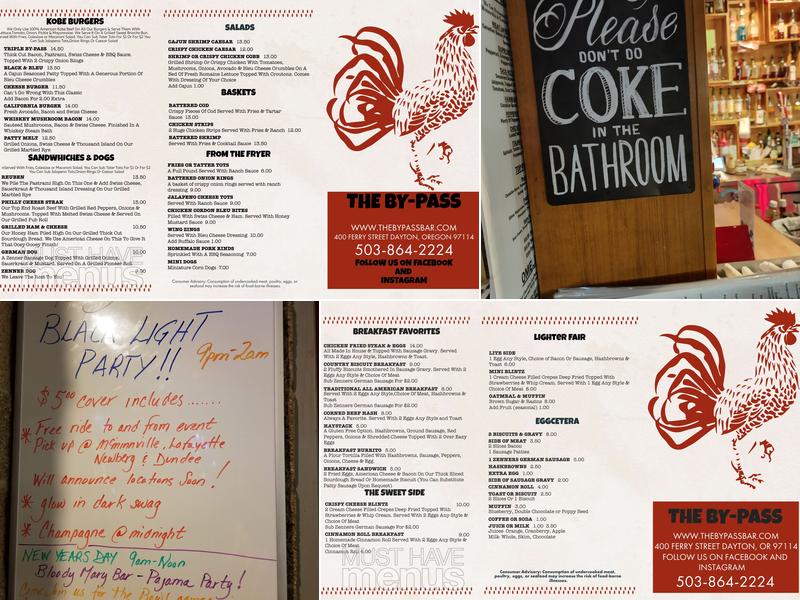 KOBE BURGERS
We Only Use 100% American Kobe Beef On All Our Burgers & Serve Them With
TRIPLE BY-PASS 14.50
Thick Cut Bacon, Pastrami, Swiss Cheese & BBQ Sauce.
Topped With 2 Crispy Onion Rings
BLACK & BLEU 13.50
A Cajun Seasoned Patty Topped With A Generous Portion Of
Bleu Cheese Crumbles
CHEESE BURGER 11.50
Can't Go Wrong With This Classic
Add Bacon For 2.00 Extra
CALIFORNIA BURGER 14.00
Fresh Avocado, Bacon and Swiss Cheese
WHISKEY MUSHROOM BACON 14.00
Sauteed Mushrooms, Bacon & Swiss Cheese. Finished In A
Whiskey Steam Bath
PATTY MELT 12.50
Grilled Onions, Swiss Cheese & Thousand Island On Our
Grilled Marbled Rye
SANDWHICHES & DOGS
REUBEN 13.50
We Pile The Pastrami High On This One & Add Swiss Cheese,
Sauerkraut & Thousand Island Dressing On Our Grilled
Marbled Rye
PHILLY CHEESE STEAK 13.50
Our Top End Roast Beef With Grilled Red Peppers, Onions &
Mushrooms. Topped With Melted Swiss Cheese & Served On
Our Grilled Pub Roll
GRILLED HAM & CHEESE 10.50
Our Honey Ham Piled High On Our Grilled Thick Cut
Sourdough Bread. We Use American Cheese On This To Give It
That Ooey Gooey Finish!
GERMAN DOG 10.00
A Zenner Sausage Dog Topped With Grilled Onions,
Sauerkraut & Mustard. Served On A Grilled Pioneer Roll
ZENNER DOG 9.00
We Leave The Rest To You
MUST HAVE
menus
SALADS
CAJUN SHRIMP CAESAR 13.50
CRISPY CHICKEN CAESAR 12.00
SHRIMP OR CRISPY CHICKEN COBB 13.00
Grilled Shrimp Or Crispy Chicken With Tomatoes,
Mushrooms, Onions, Avocado & Bleu Cheese Crumbles On A
Bed Of Fresh Romaine Lettuce Topped With Croutons. Comes
With Dressing Of Your Choice
Add Cajun 1.00
BASKETS
BATTERED COD
Crispy Pieces Of Cod Served With Fries & Tartar
Sauce 13.00
CHICKEN STRIPS
2 Huge Chicken Strips Served With Fries & Ranch 12.00
BATTERED SHRIMP
Served With Fries & Cocktail Sauce 13.50
FROM THE FRYER
FRIES OR TATTER TOTS
A Full Pound Served With Ranch Sauce 6.00
BATTERED ONION RINGS
A basket of crispy onion rings served with ranch
dressing 9.00
JALAPENO CHEESE TOTS
Served With Ranch Sauce 9.00
CHICKEN CORDON BLEU BITES
Filled With Swiss Cheese & Ham. Served With Honey
Mustard Sauce 9.00
WING ZINGS
Served With Bleu Cheese Dressing 10.00
Add Buffalo Sauce 1.00
HOMEMADE PORK RINDS
Sprinkled With A BBQ Seasoning 7.00
MINI DOGS
Miniature Corn Dogs 7.00
Consumer Advisory: Consumption of undercooked meat, poultry, eggs, or
seafood may increase the risk of food-borne illnesses.
THE BY-PASS
WWW.THEBYPASSBAR.COM
400 FERRY STREET DAYTON, OREGON 97114
503-864-2224
FOLLOW US ON FACEBOOK
AND
INSTAGRAM
Please
DON'T DO
COKE
IN THE
BATHROOM
BLACK LIGHT
PARTY!! 9pm-2am
$5.00 cover includes......
* Free ride to and from event
Pick up @ McMinnville, Lafayette
Newberg & Dundee
Will announce locations Soon!
* glow in dark swag
* Champagne @ midnight
NEW YEARS DAY 9am-Noon
Bloody Mary Bar - Pajama Party!
BREAKFAST FAVORITES
CHICKEN FRIED STEAK & EGGS 14.00
All Made In House & Topped With Sausage Gravy. Served
With 2 Eggs, Hashbrowns & Toast.
COUNTRY BISCUIT BREAKFAST 10.00
2 Fluffy Biscuits Smothered In Sausage Gravy. Served With 2
Eggs Any Style & Choice Of Meat
Sub Zenners German Sausage For $2.00
TRADITIONAL ALL AMERICAN BREAKFAST 8.00
Served With 2 Eggs Any Style,Choice Of Meat, Hashbrowns &
Toast
Sub Zenners German Sausage For $2.00
CORNED BEEF HASH 8.00
Always A Favorite. Served With 2 Eggs Any Style and Toast
HAYSTACK 8.00
A Gluten Free Option. Hashbrowns, Ground Sausage, Red
Peppers, Onions & Shredded Cheese Topped With 2 Over Easy
Eggs
BREAKFAST BURRITO 8.00
A Flour Tortilla Filled With Hashbrowns, Sausage, Peppers,
Onions, Cheese & Egg.
BREAKFAST SANDWICH 8.00
2 Fried Eggs, American Cheese & Bacon On Our Thick Sliced
Sourdough Bread Or Homemade Biscuit (You Can Substitute
Patty Sausage Upon Request)
THE SWEET SIDE
CRISPY CHEESE BLINTZ 10.00
2 Cream Cheese Filled Crepes Deep Fried Topped With
Strawberries & Whip Cream. Served With 2 Eggs Any Style &
Choice Of Meat
Sub Zenners German Sausage For $2.00
CINNAMON ROLL BREAKFAST 9.00
1 Homemade Cinnamon Roll Served With 2 Eggs Any Style &
Choice Of Meat
Cinnamon Roll 4.00
MUST HAVE
menus
LIGHTER FAIR
LITE SIDE
1 Egg Any Style, Choice of Bacon Or Sausage, Hashbrowns &
Toast 6.00
MINI BLINTZ
1 Cream Cheese Filled Crepes Deep Fried Topped With
Strawberries & Whip Cream. Served With 1 Egg Any Style &
Choice Of Meat 6.00
OATMEAL & MUFFIN
Brown Sugar & Raisins 6.00
Add Fruit (seasonal) 1.00
EGGCETERA
2 BISCUITS & GRAVY 8.00
SIDE OF MEAT 3.50
2 Slices Bacon
1 Sausage Patties
1 ZENNERS GERMAN SAUSAGE 5.00
HASHBROWNS 2.50
EXTRA EGG 1.00
SIDE OF SAUSAGE GRAVY 2.00
CINNAMON ROLL 4.00
TOAST OR BISCUIT 2.50
2 Slices Or 1 Biscuit
MUFFIN 3.00
Blueberry, Double Chocolate or Poppy Seed
COFFEE OR SODA 1.00
JUICE OR MILK 1.00 3.50
Juices Orange, Cranberry, Apple
Milk Whole, Skim, Chocolate
Consumer Advisory: Consumption of undercooked meat,
poultry, eggs, or seafood may increase the risk of food-borne
illnesses.
THE BY-PASS
WWW.THEBYPASSBAR.COM
400 FERRY STREET DAYTON, OR 97114
FOLLOW US ON FACEBOOK AND
INSTAGRAM
503-864-2224